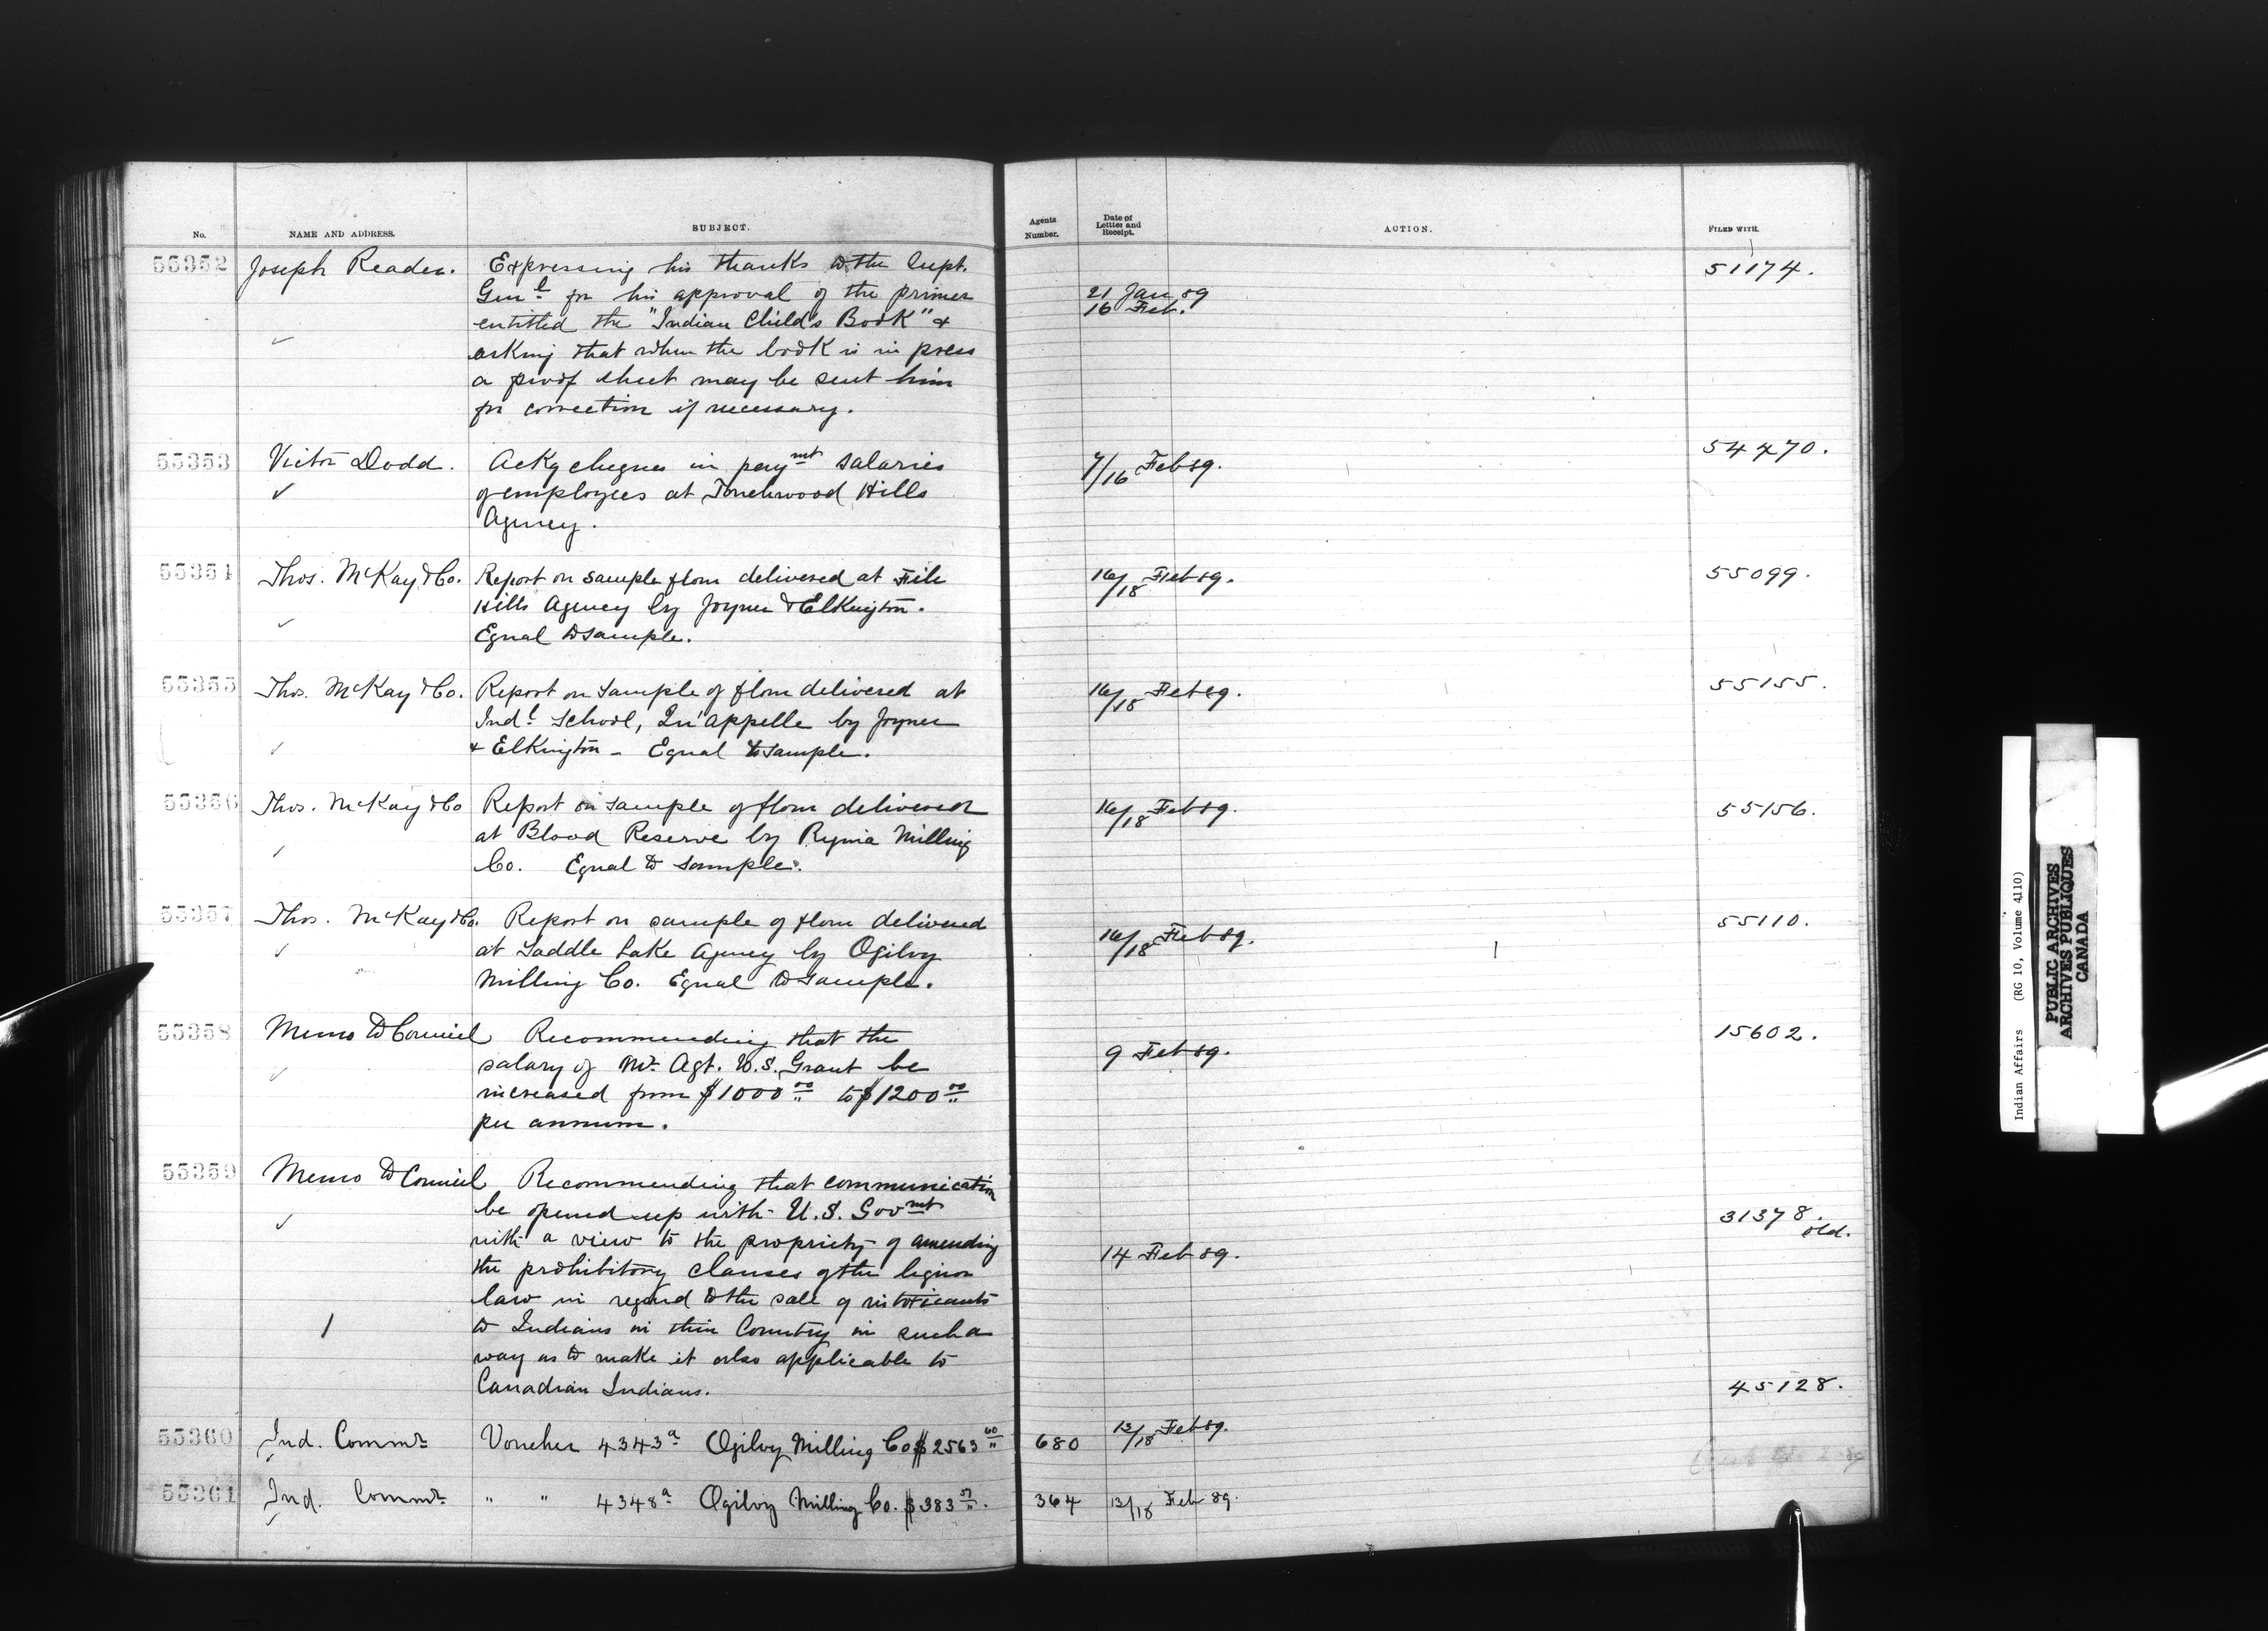 No. NAME AND ADDRESS. SUBJECT. Agents Number. Date of Letter and Receipt. ACTION. FILED WITH.
55352 Joseph Reader. Expressing his thanks to the Supt. 51174.
Genl for his approval of the primer 21 Jan 89
entitled the "Indian Child's Book" & 16 Feb.
asking that when the book is in press
a proof sheet may be sent him
for correction if necessary.
55353 Victor Dodd. Ackg cheques in paymt salaries 7/16 Feb 89. 54470.
of employees at Touchwood Hills
Agency.
55354 Thos. McKay & Co. Report on sample flour delivered at File 16/18 Feb 89. 55099.
Hills Agency by Joyner & Elkington.
Equal to sample.
55355 Thos. McKay & Co. Report on sample of flour delivered at 16/18 Feb 89. 55155.
Indl School, Qu'appelle by Joyner
& Elkington - Equal to sample.
55356 Thos. McKay & Co Report on sample of flour delivered 16/18 Feb 89. 55156.
at Blood Reserve by Regina Milling
Co. Equal to sample.
55357 Thos. McKay & Co. Report on sample of flour delivered 16/18 Feb 89. 55110.
at Saddle Lake Agency by Ogilvy
Milling Co. Equal to sample.
55358 Memo to Council Recommending that the 9 Feb 89. 15602.
salary of Mr Agt. W.S. Grant be
increased from $1000 00 to $1200 00
per annum.
55359 Memo to Council Recommending that communication
be opened up with U.S. Govmt 31378. old.
with a view to the propriety of amending 14 Feb 89.
the prohibitory clauses of the liquor
law in regard to the sale of intoxicants
to Indians in their Country in such a
way as to make it also applicable to
Canadian Indians. 45128.
55360 Ind. Commr Voucher 4343a Ogilvy Milling Co $2563 60 680 13/18 Feb 89.
55361 Ind. Commr " " 4348a Ogilvy Milling Co. $383 57. 364 13/18 Feb 89.
Indian Affairs (RG 10, Volume 4110)
PUBLIC ARCHIVES
ARCHIVES PUBLIQUES
CANADA